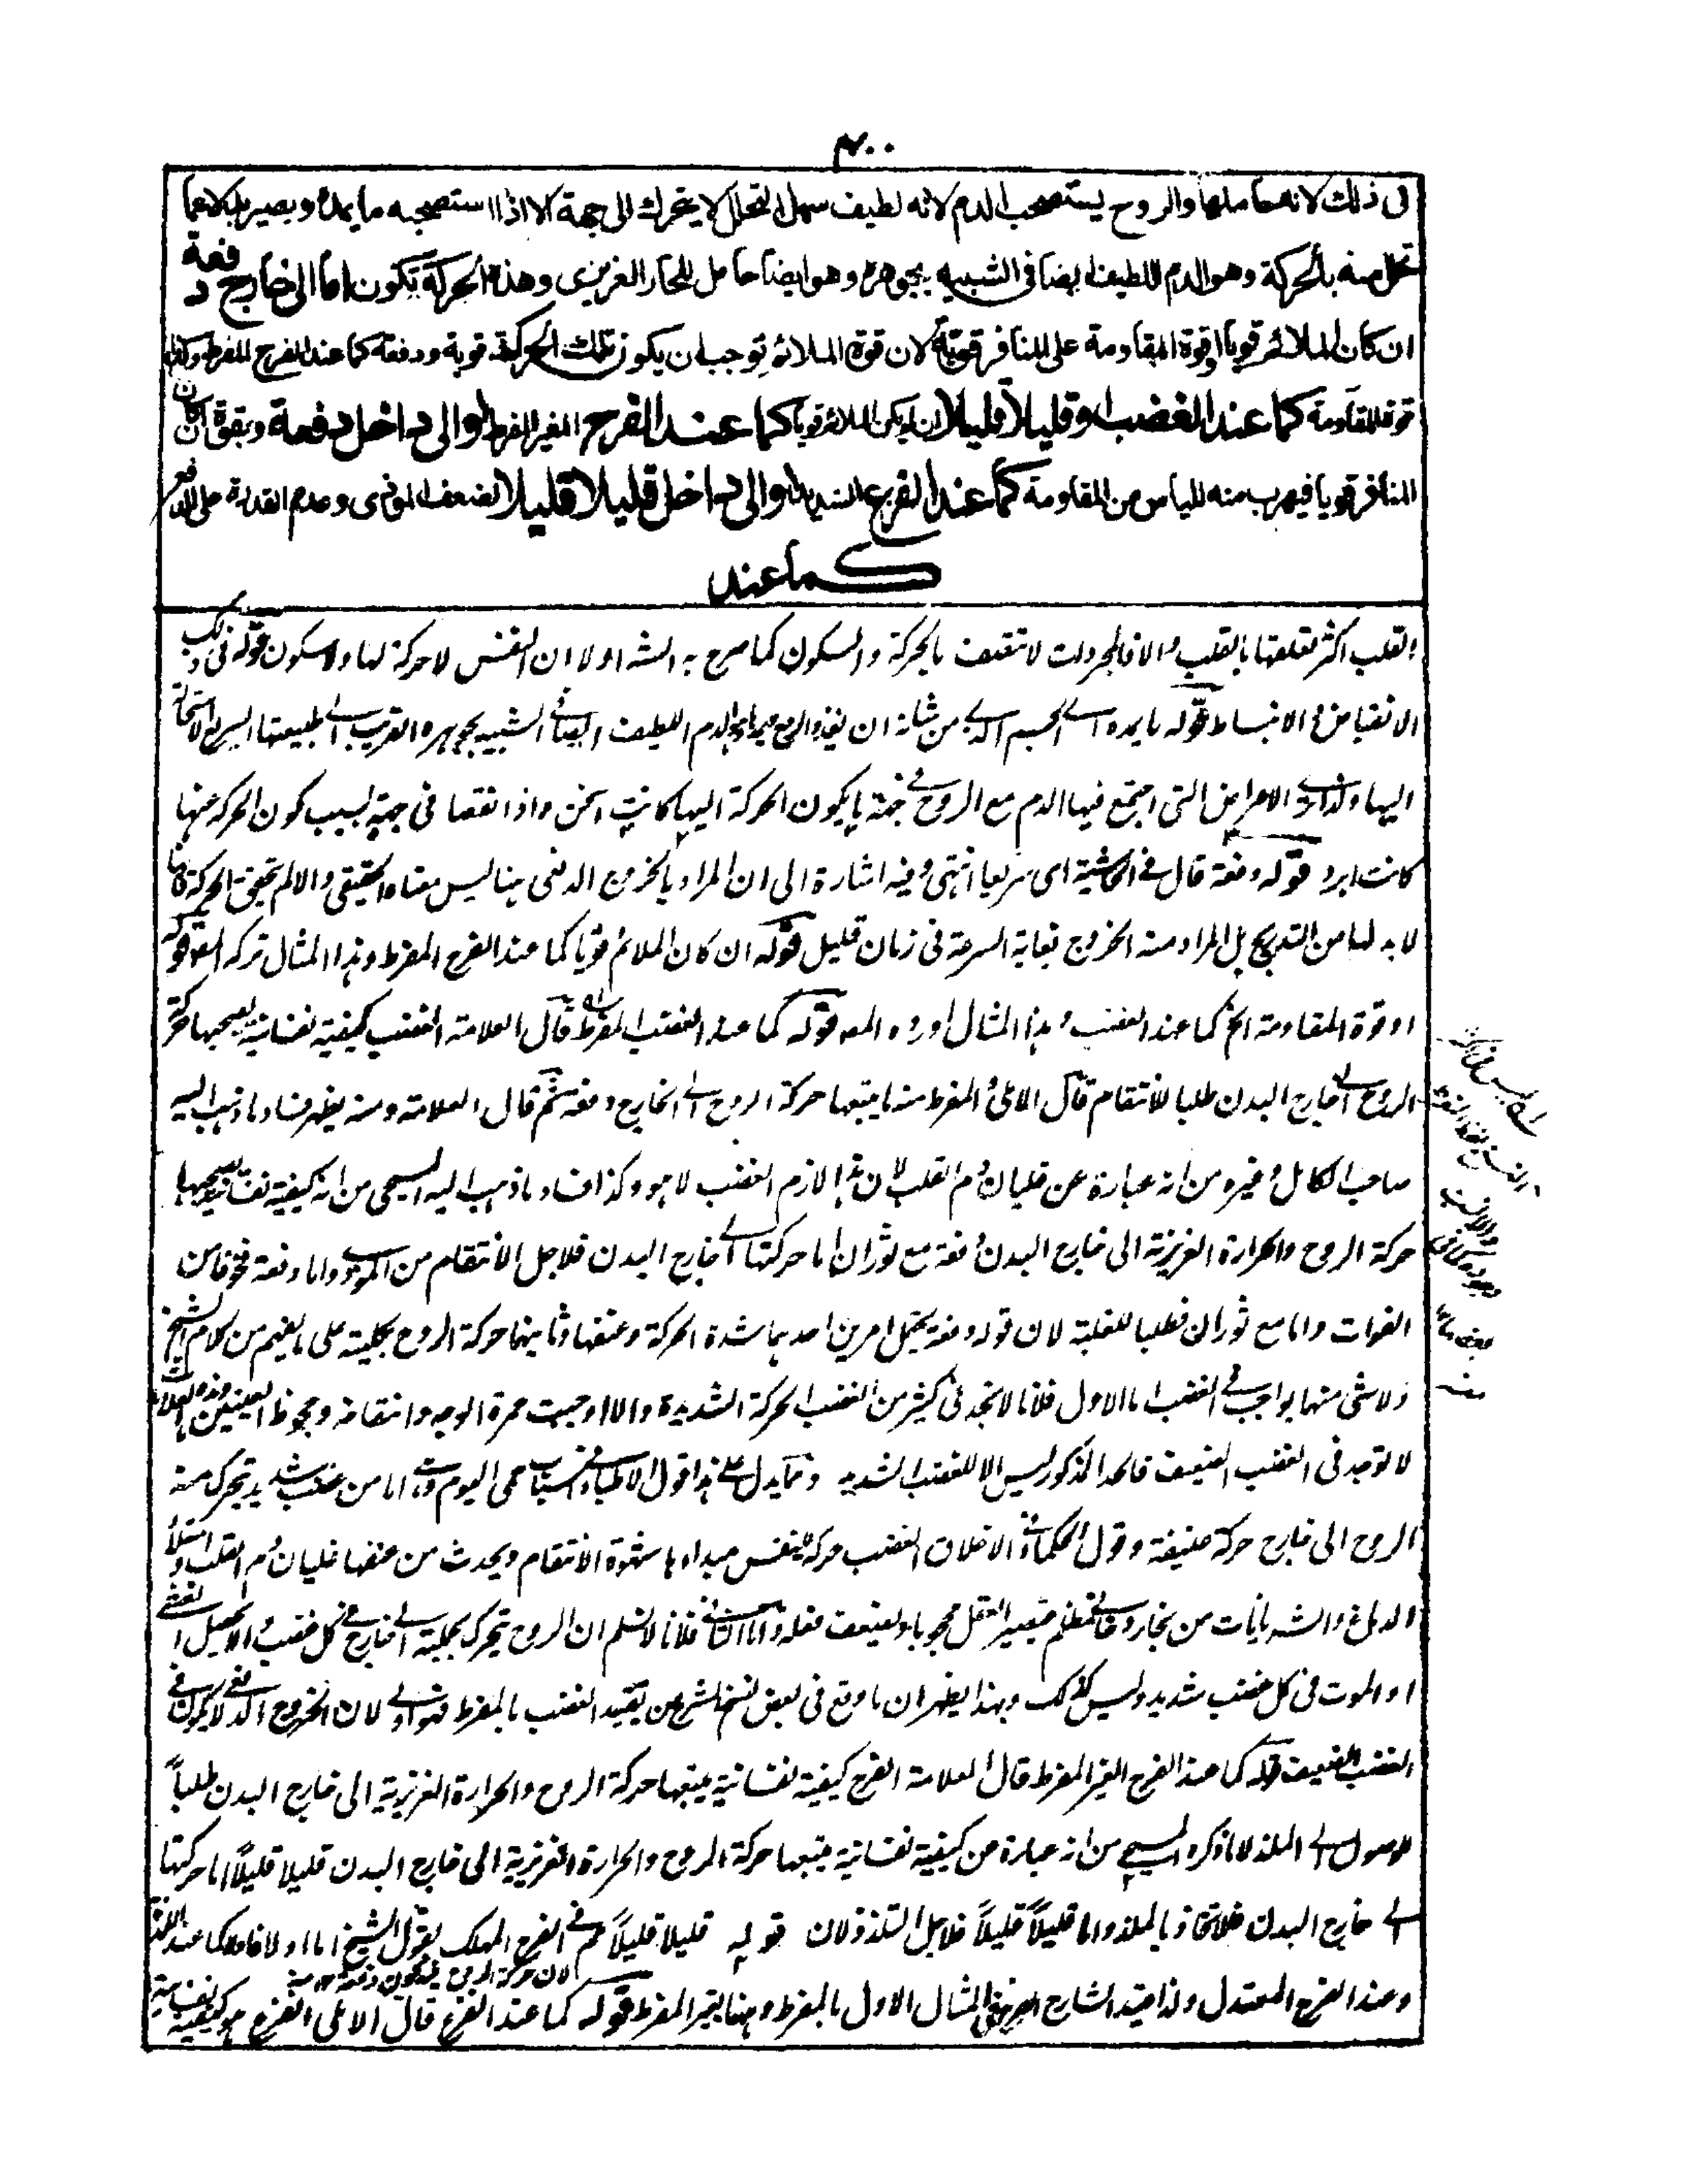 ٣٠٠
فى ذلك لانه حاملها والروح يستصحب الدم لانه لطيف سهل التحلل لا يتحرك الى جهة الا اذا استصحبه ما يمده ويصير بدلا عما
تحلل منه بالحركة وهو الدم اللطيف ايضا فى الشبيه بجوهره وهو ايضا حامل للحار الغريزى وهذه الحركة تكون اما الى خارج دفعة
ان كان الملائم قويا او قوة المقاومة على المنافر قوية لان قوة الملائم توجب ان يكون تلك الحركة قوية ودفعة كما عند الفرح المفرط وكذا
قوة المقاومة كما عند الغضب او قليلا قليلا ان لم يكن الملائم قويا كما عند الفرح الغير المفرط او الى داخل دفعة وبقوة ان كان
المنافر قويا فيهرب منه لليأس من المقاومة كما عند الفزع الشديد او الى داخل قليلا قليلا لضعف الموذى وعدم القدرة على الدفع
كما عند
القلب اكثر تعلقها بالقلب والا فالمجردات لا تتصف بالحركة والسكون كما صرح به الشه اولا ان النفس لا حركة لها ولا سكون قوله فى ذلك
الانقباض والانبساط قوله ما يمده اى الجسم الذى من شانه ان يغذو الروح الدم اللطيف الشبيه بجوهره القريب الى طبيعتها السريع الاستحالة
اليها ولذا الاعراض التى اجتمع فيها الدم مع الروح فى جهة ما يكون الحركة اليها كانت اسخن واذا نقصا فى جهة بسبب كون الحركة عنها
كانت ابرد قوله دفعة قال فى الحاشية اى سريعا انتهى وفيه اشارة الى ان المراد بالخروج الدفعى هنا ليس معناه الحقيقى والا لم تحقق الحركة فانها
لا بد لها من التدريج بل المراد منه الخروج بغاية السرعة فى زمان قليل قوله ان كان الملائم قويا كما عند الفرح المفرط وهذا المثال تركه المص قوله
او قوة المقاومة الخ كما عند الغضب وهذا المثال اورده المصه قوله كما عند الغضب المفرط قال العلامة الغضب كيفية نفسانية يصحبها حركة
الروح الى خارج البدن طلبا للانتقام قال الاملى المفرط منه ما يتبعها حركة الروح الى الخارج دفعة ثم قال العلامة ومنه يظهر فساد ما ذهب اليه
صاحب الكامل وغيره من انه عبارة عن غليان دم القلب لان هذا لازم الغضب لا هو وكذا فساد ما ذهب اليه المسيحى من انه كيفية نفسانية يصحبها
حركة الروح والحرارة الغريزية الى خارج البدن دفعة مع ثوران اما حركتها الى خارج البدن فلاجل الانتقام من الموذى واما دفعة فخوفا من
الفوات واما مع ثوران فطلبا للغلبة لان قوله دفعة يحتمل امرين احدهما شدة الحركة وعنفها وثانيهما حركة الروح بكليته على ما يفهم من كلام الشيخ
ولا شئ منها بواجب فى الغضب اما الاول فلانا لا نجد فى كثير من الغضب الحركة الشديدة والا لاوجبت حمرة الوجه وانتفاخه وجحوظ العينين وهذه العلامات
لا توجد فى الغضب الضعيف فالحد المذكور ليس الا للغضب الشديد ومما يدل على هذا قول الاطباء فى اسباب حمى اليوم واما من غضب شديد يتحرك منه
الروح الى خارج حركة عنيفة وقول الحكماء فى الاخلاق الغضب حركة للنفس مبداءها شهوة الانتقام ويحدث من عنفها غليان دم القلب وامتلأ
الدماغ والشريانات من بخار دخانى مظلم فيصير العقل محجوبا ويضعف فعله واما الثانى فلانا لا نسلم ان الروح يتحرك بكليته الى خارج فى كل غضب والا يحصل الغشى
او الموت فى كل غضب شديد وليس كذلك وبهذا يظهر ان ما وقع فى بعض نسخ الشرح من تقييد الغضب بالمفرط فهو اولى لان الخروج الدفعى لا يكون فى
الغضب الضعيف قوله كما عند الفرح الغير المفرط قال العلامة الفرح كيفية نفسانية يتبعها حركة الروح والحرارة الغريزية الى خارج البدن طلباً
للوصول الى الملذ لا ما ذكره المسيحى من انه عبارة عن كيفية نفسانية يتبعها حركة الروح والحرارة الغريزية الى خارج البدن قليلا قليلاً اما حركتها
الى خارج البدن فللاتحاد بالملذ واما قليلاً قليلاً فلاجل التلذذ لان قوله قليلا قليلاً ثم فى الفرح المهلك بقول الشيخ اما اولا فاولا كما عند اللذة
لان حركة الروح فيه تكون دفعة
وعند الفرح المعتدل ولذا قيد الشارح الفرح فى المثال الاول بالمفرط وهنا بغير المفرط قوله كما عند الفزع قال الاملى الفزع هو كيفية نفسانية